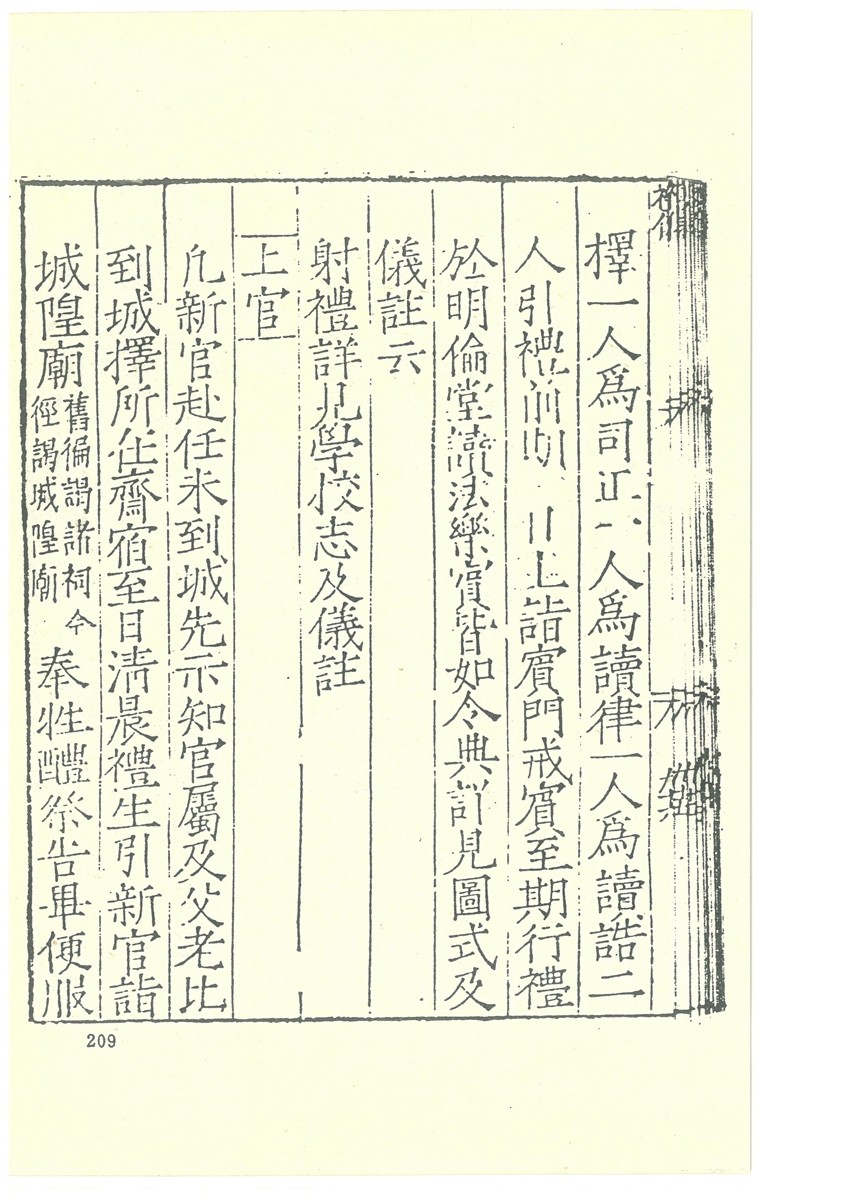 擇一人爲司正一人爲讀律一人爲讀誥二
人引禮前期 日上詣賓門戒賓至期行禮
於明倫堂讀法樂賓皆如令典詳見圖式及
儀註云
射禮詳見學校志及儀註
上官
凡新官赴任未到城先示知官屬及父老比
到城擇所在齋宿至日清晨禮生引新官詣
城隍廟舊徧謁諸祠今徑謁城隍廟奉牲醴祭告畢便服
209